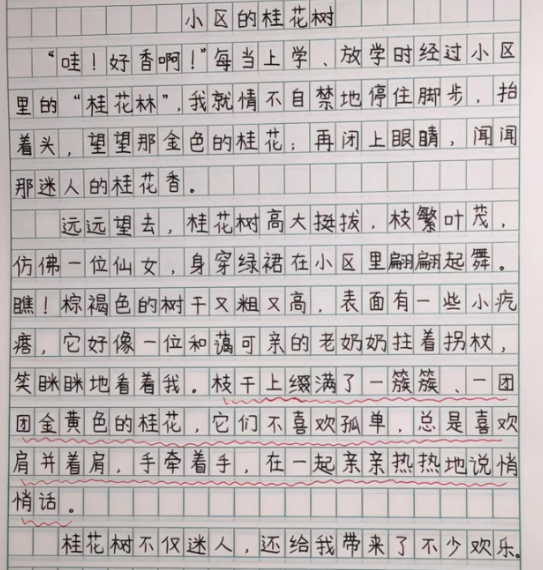 小区的桂花树
“哇！好香啊！”每当上学、放学时经过小区
里的“桂花林”，我就情不自禁地停住脚步，抬
着头，望望那金色的桂花；再闭上眼睛，闻闻
那迷人的桂花香。
远远望去，桂花树高大挺拔，枝繁叶茂，
仿佛一位仙女，身穿绿裙在小区里翩翩起舞。
瞧！棕褐色的树干又粗又高，表面有一些小疙
瘩，它好像一位和蔼可亲的老奶奶拄着拐杖，
笑眯眯地看着我。枝干上缀满了一簇簇、一团
团金黄色的桂花，它们不喜欢孤单，总是喜欢
肩并着肩，手牵着手，在一起亲亲热热地说悄
悄话。
桂花树不仅迷人，还给我带来了不少欢乐。